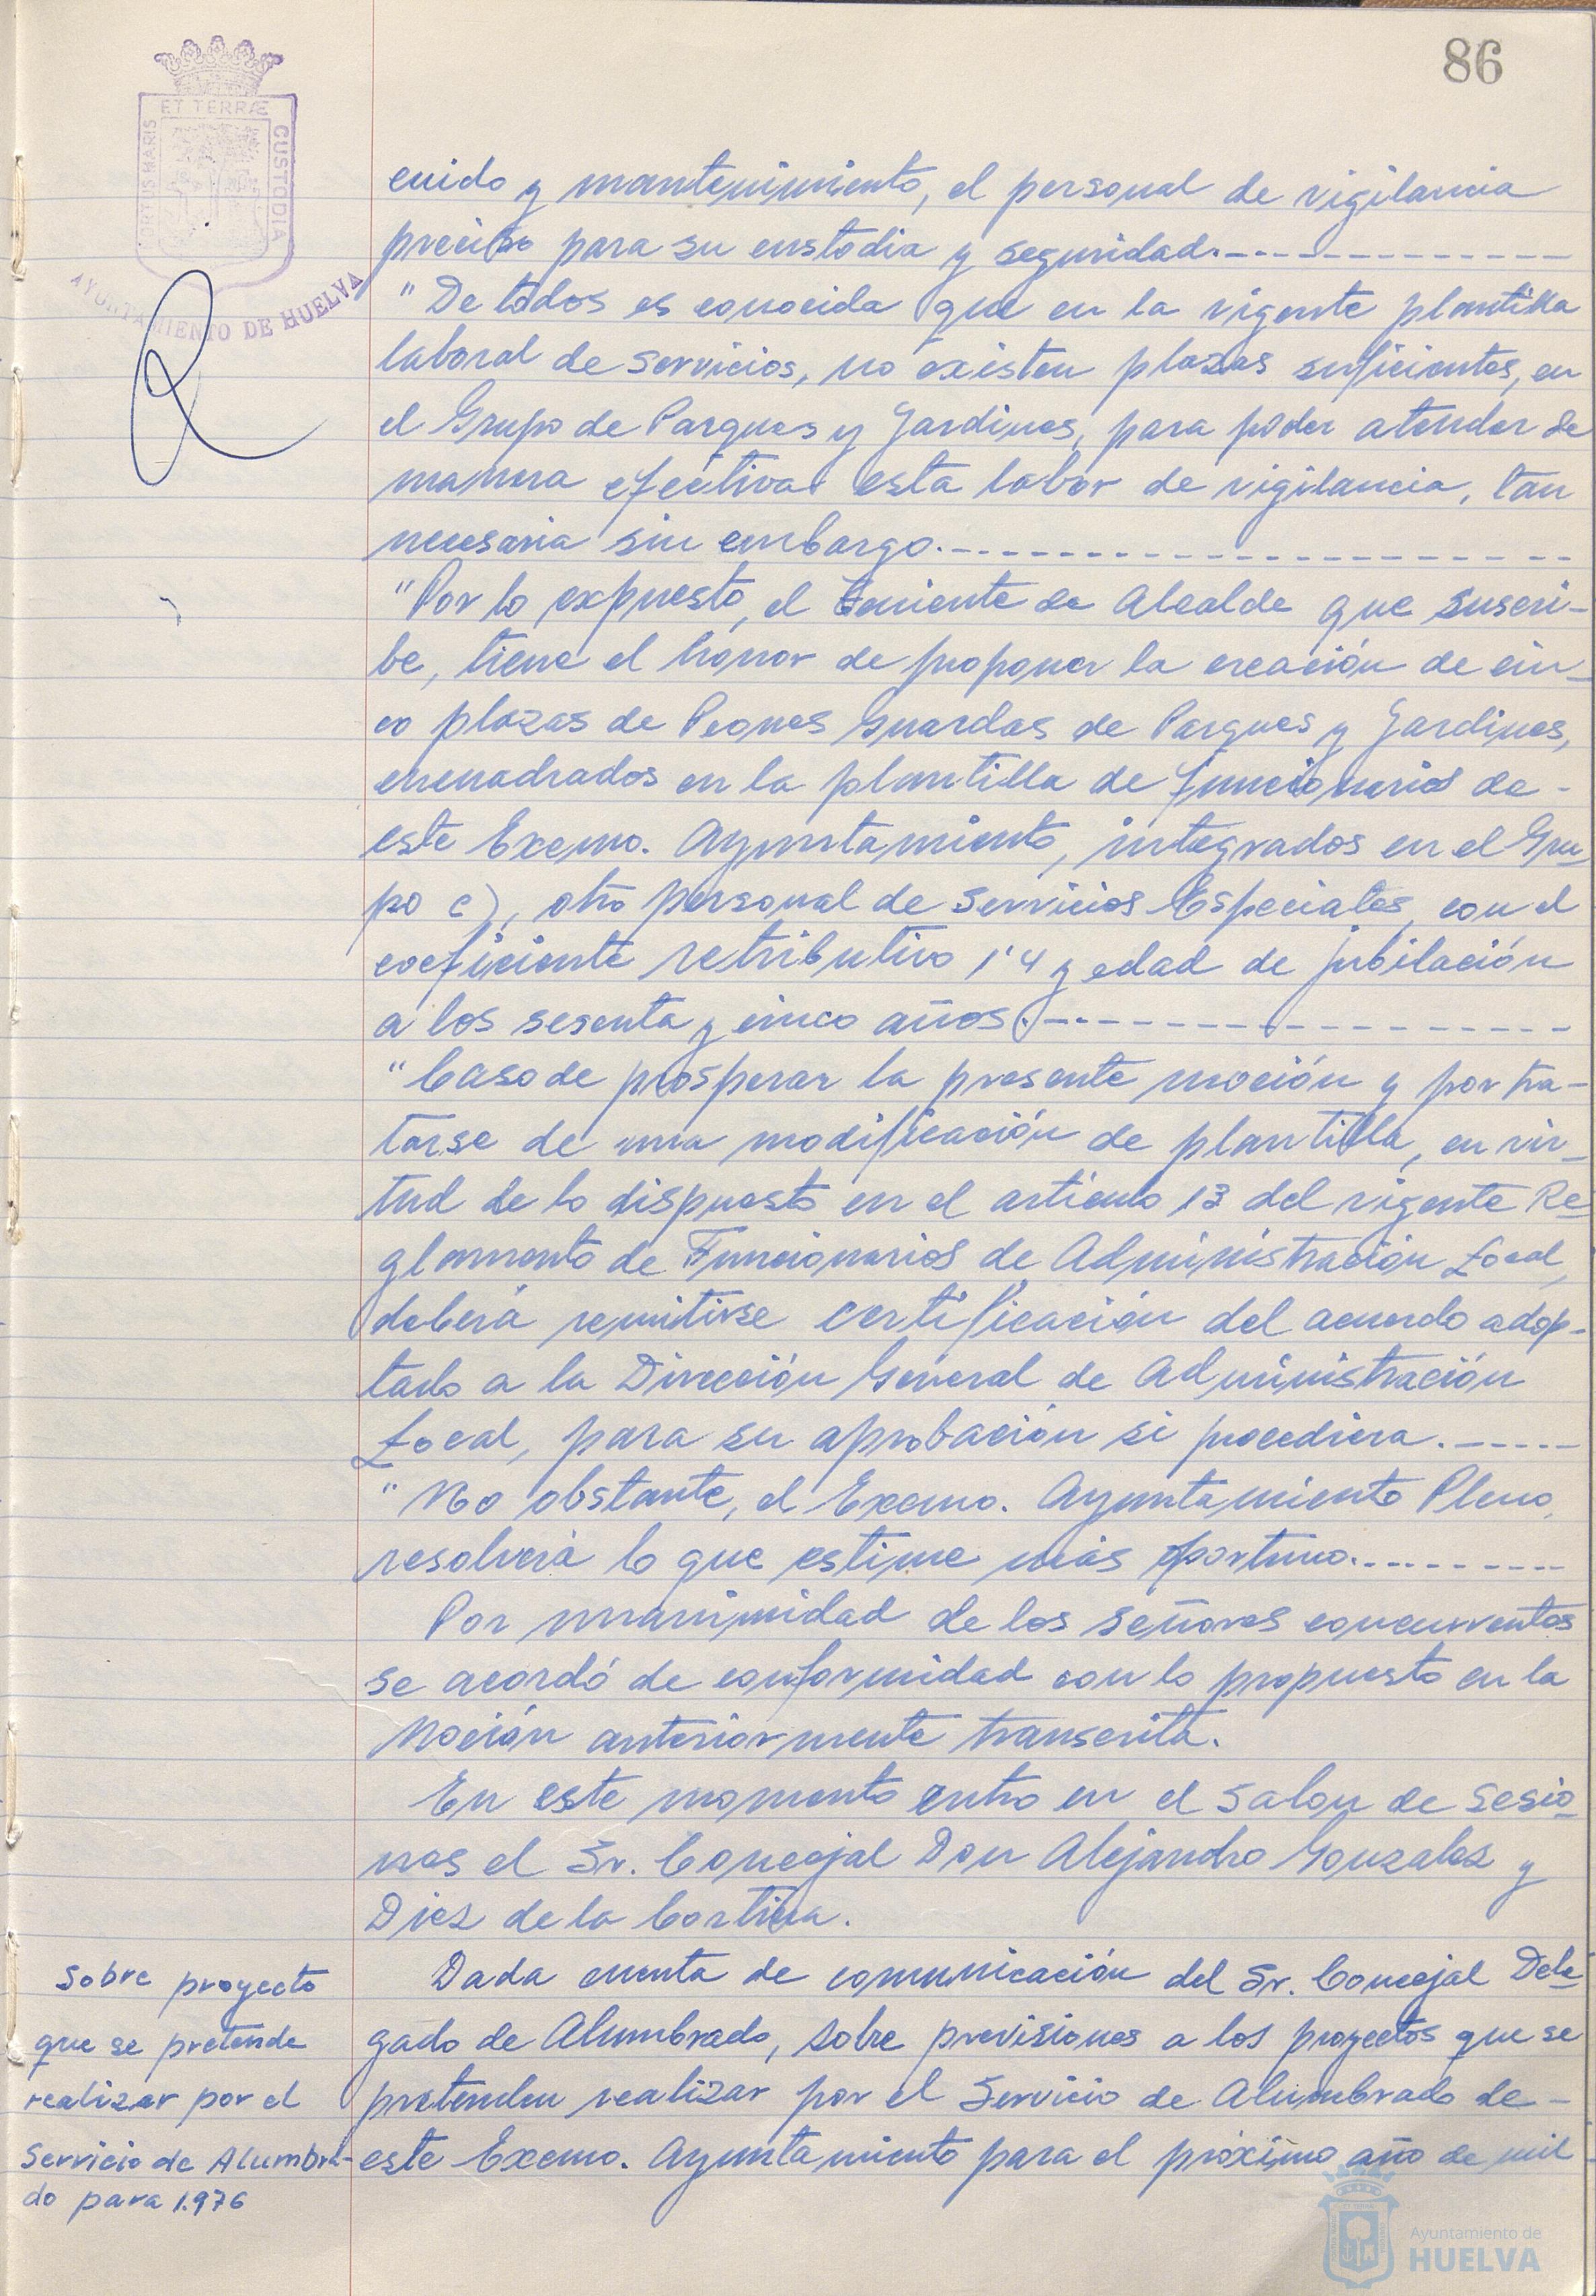 86
ET TERRÆ
PORTUS MARIS
CUSTODIA
AYUNTAMIENTO DE HUELVA
cuido y mantenimiento, el personal de vigilancia
preciso para su custodia y seguridad.-------------
"De todos es conocida que en la vigente plantilla
laboral de servicios, no existen plazas suficientes, en
el Grupo de Parques y Jardines, para poder atender de
manera efectiva esta labor de vigilancia, tan
necesaria sin embargo.---------------------
"Por lo expuesto, el teniente de Alcalde que suscri-
be, tiene el honor de proponer la creación de cin-
co plazas de Peones Guardas de Parques y Jardines,
encuadrados en la plantilla de funcionarios de-
este Excmo. Ayuntamiento, integrados en el Gru-
po c), otro personal de Servicios Especiales, con el
coeficiente retributivo 1'4 y edad de jubilación
a los sesenta y cinco años.-------------------
"Caso de prosperar la presente moción y por tra-
tarse de una modificación de plantilla, en vir-
tud de lo dispuesto en el artículo 13 del vigente Re-
glamento de Funcionarios de Administración Local,
deberá remitirse certificación del acuerdo adop-
tado a la Dirección General de Administración
Local, para su aprobación si procediera.------
"No obstante, el Excmo. Ayuntamiento Pleno,
resolverá lo que estime más oportuno.---------
Por unanimidad de los señores concurrentes
se acordó de conformidad con lo propuesto en la
Moción anteriormente transcrita.
En este momento entro en el Salon de Sesio-
nes el Sr. Concejal Don Alejandro Gonzalez y
Diez de la Cortina.
Sobre proyecto
que se pretende
realizar por el
Servicio de Alumbra-
do para 1.976
Dada cuenta de comunicación del Sr. Concejal Dele-
gado de Alumbrado, sobre previsiones a los proyectos que se
pretenden realizar por el Servicio de Alumbrado de-
este Excmo. Ayuntamiento para el próximo año de mil
Ayuntamiento de
HUELVA